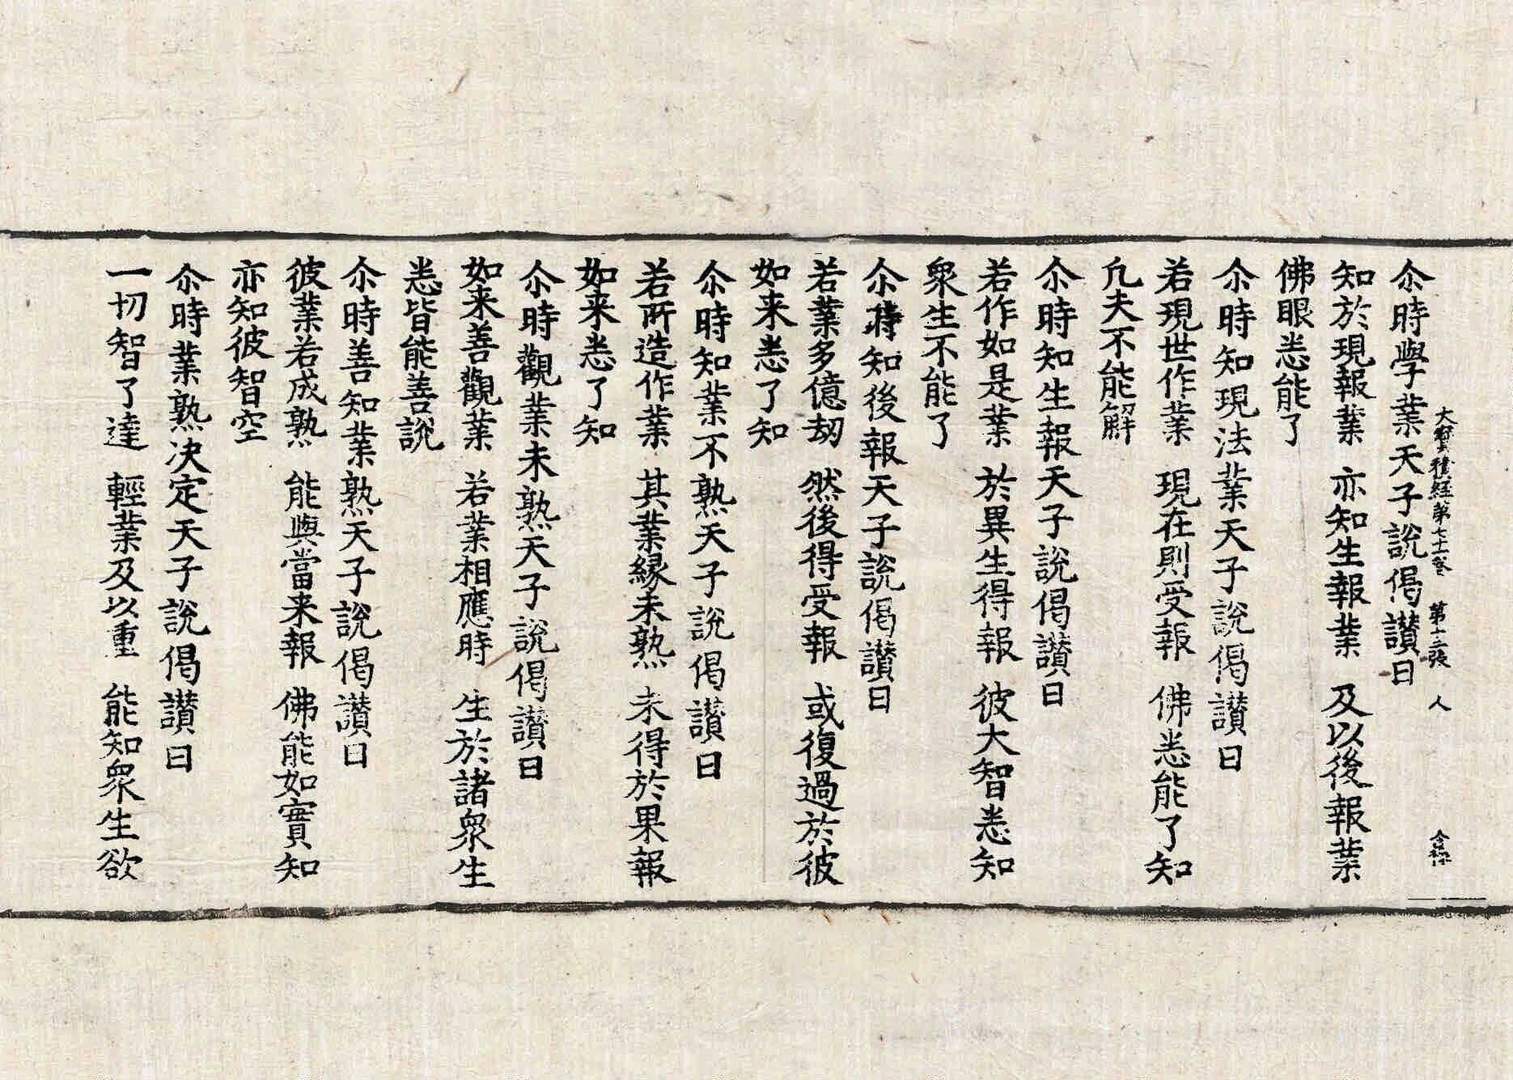 大寶積經第七十一卷　第十三張　人
尒時學業天子說偈讃曰
知於現報業　亦知生報業　及以後報業
佛眼悉能了
尒時知現法業天子說偈讃曰
若現世作業　現在則受報　佛悉能了知
凡夫不能解
尒時知生報天子說偈讃曰
若作如是業　於異生得報　彼大智悉知
衆生不能了
尒時知後報天子說偈讃曰
若業多億劫　然後得受報　或復過於彼
如来悉了知
尒時知業不熟天子說偈讃曰
若所造作業　其業縁未熟　未得於果報
如来悉了知
尒時觀業未熟天子說偈讃曰
如来善觀業　若業相應時　生於諸衆生
悉皆能善說
尒時善知業熟天子說偈讃曰
彼業若成熟　能與當来報　佛能如實知
亦知彼智空
尒時業熟决定天子說偈讃曰
一切智了達　輕業及以重　能知衆生欲